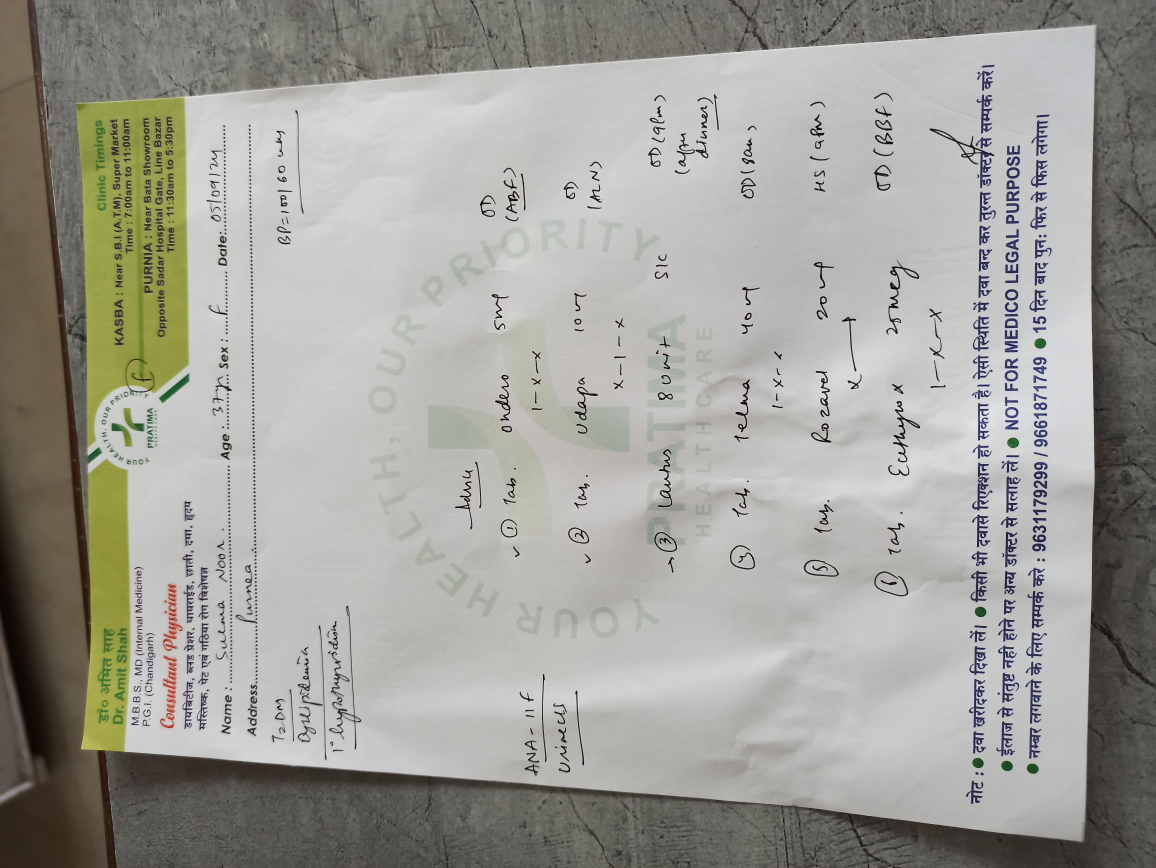 डॉ० अमित साह
Dr. Amit Shah
M.B.B.S., MD (Internal Medicine)
P.G.I. (Chandigarh)
Consultant Physician
डायबिटीज, ब्लड प्रेशर, थायराईड, छाती, दमा, हृदय
मस्तिष्क, पेट एवं गठिया रोग विशेषज्ञ
YOUR HEALTH, OUR PRIORITY
PRATIMA
Clinic Timings
KASBA : Near S.B.I (A.T.M), Super Market
Time : 7:00am to 11:00am
PURNIA : Near Bata Showroom
Opposite Sadar Hospital Gate, Line Bazar
Time : 11:30am to 5:30pm
Name : Noor. Age : 37yr Sex : F Date: 05/09/24
Address Purnea
T2DM
Dyslipidemia
1° hypothyroidism
BP=100/60
ANA-IIF
Advice
① Tab. Ondero 5mg OD
1-x-x (ABF)
② Tab. Udapa 10mg OD
x-1-x
③ Lantus 8 Unit S/C OD (9pm)
(after dinner)
④ Tab. 40mg OD (8am)
1-x-x
⑤ Tab. Rozavel 20mg HS (9pm)
⑥ Tab. Euthyrox 25mcg OD (BBF)
1-x-x
YOUR HEALTH, OUR PRIORITY
PRATIMA
HEALTH CARE
नोट : ● दवा खरीदकर दिखा लें। ● किसी भी दवासे रिएक्शन हो सकता है। ऐसी स्थिति में दवा बन्द कर तुरन्त डॉक्टर से सम्पर्क करें।
● ईलाज से संतुष्ट नही होने पर अन्य डॉक्टर से सलाह लें। ● NOT FOR MEDICO LEGAL PURPOSE
● नम्बर लगवाने के लिए सम्पर्क करे : 9631179299 / 9661871749 ● 15 दिन बाद पुन: फिर से फिस लगेगा।